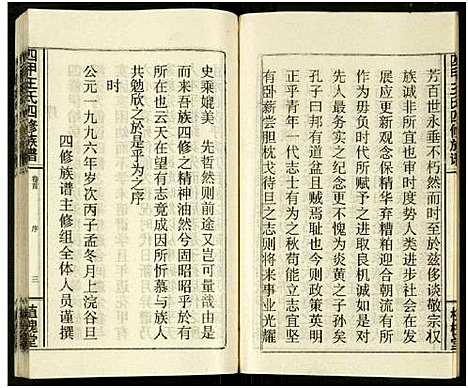 芳百世永垂不朽然而时至于兹侈谈敬宗权
族诚非所宜百年以来时代前进社会在发
展应更新观念保精华弃糟粕迎合朝流有所
为不负一代时代所赋予之进取良机诚如是对
宗有孝之纪念更不愧为炎黄之子孙矣
孔子曰邦有道贫且贱焉耻也今则政策英明
今朝有志之士应有为之秋苟能人人
有卧薪尝胆枕戈待旦之志则将来事业光耀
史乘媲美　先哲然则前途又岂可量哉由是
而来吾族四修之精神油然兮固昭昭乎於有
所在也云天在望有志竟成因所忻慕与族人
共勉欣之於是乎为之序
时
公元一九九六年岁次丙子孟冬月上浣谷旦
四修族谱主修组全体人员谨撰
四甲王氏四修族谱
卷首
序
三
植槐堂